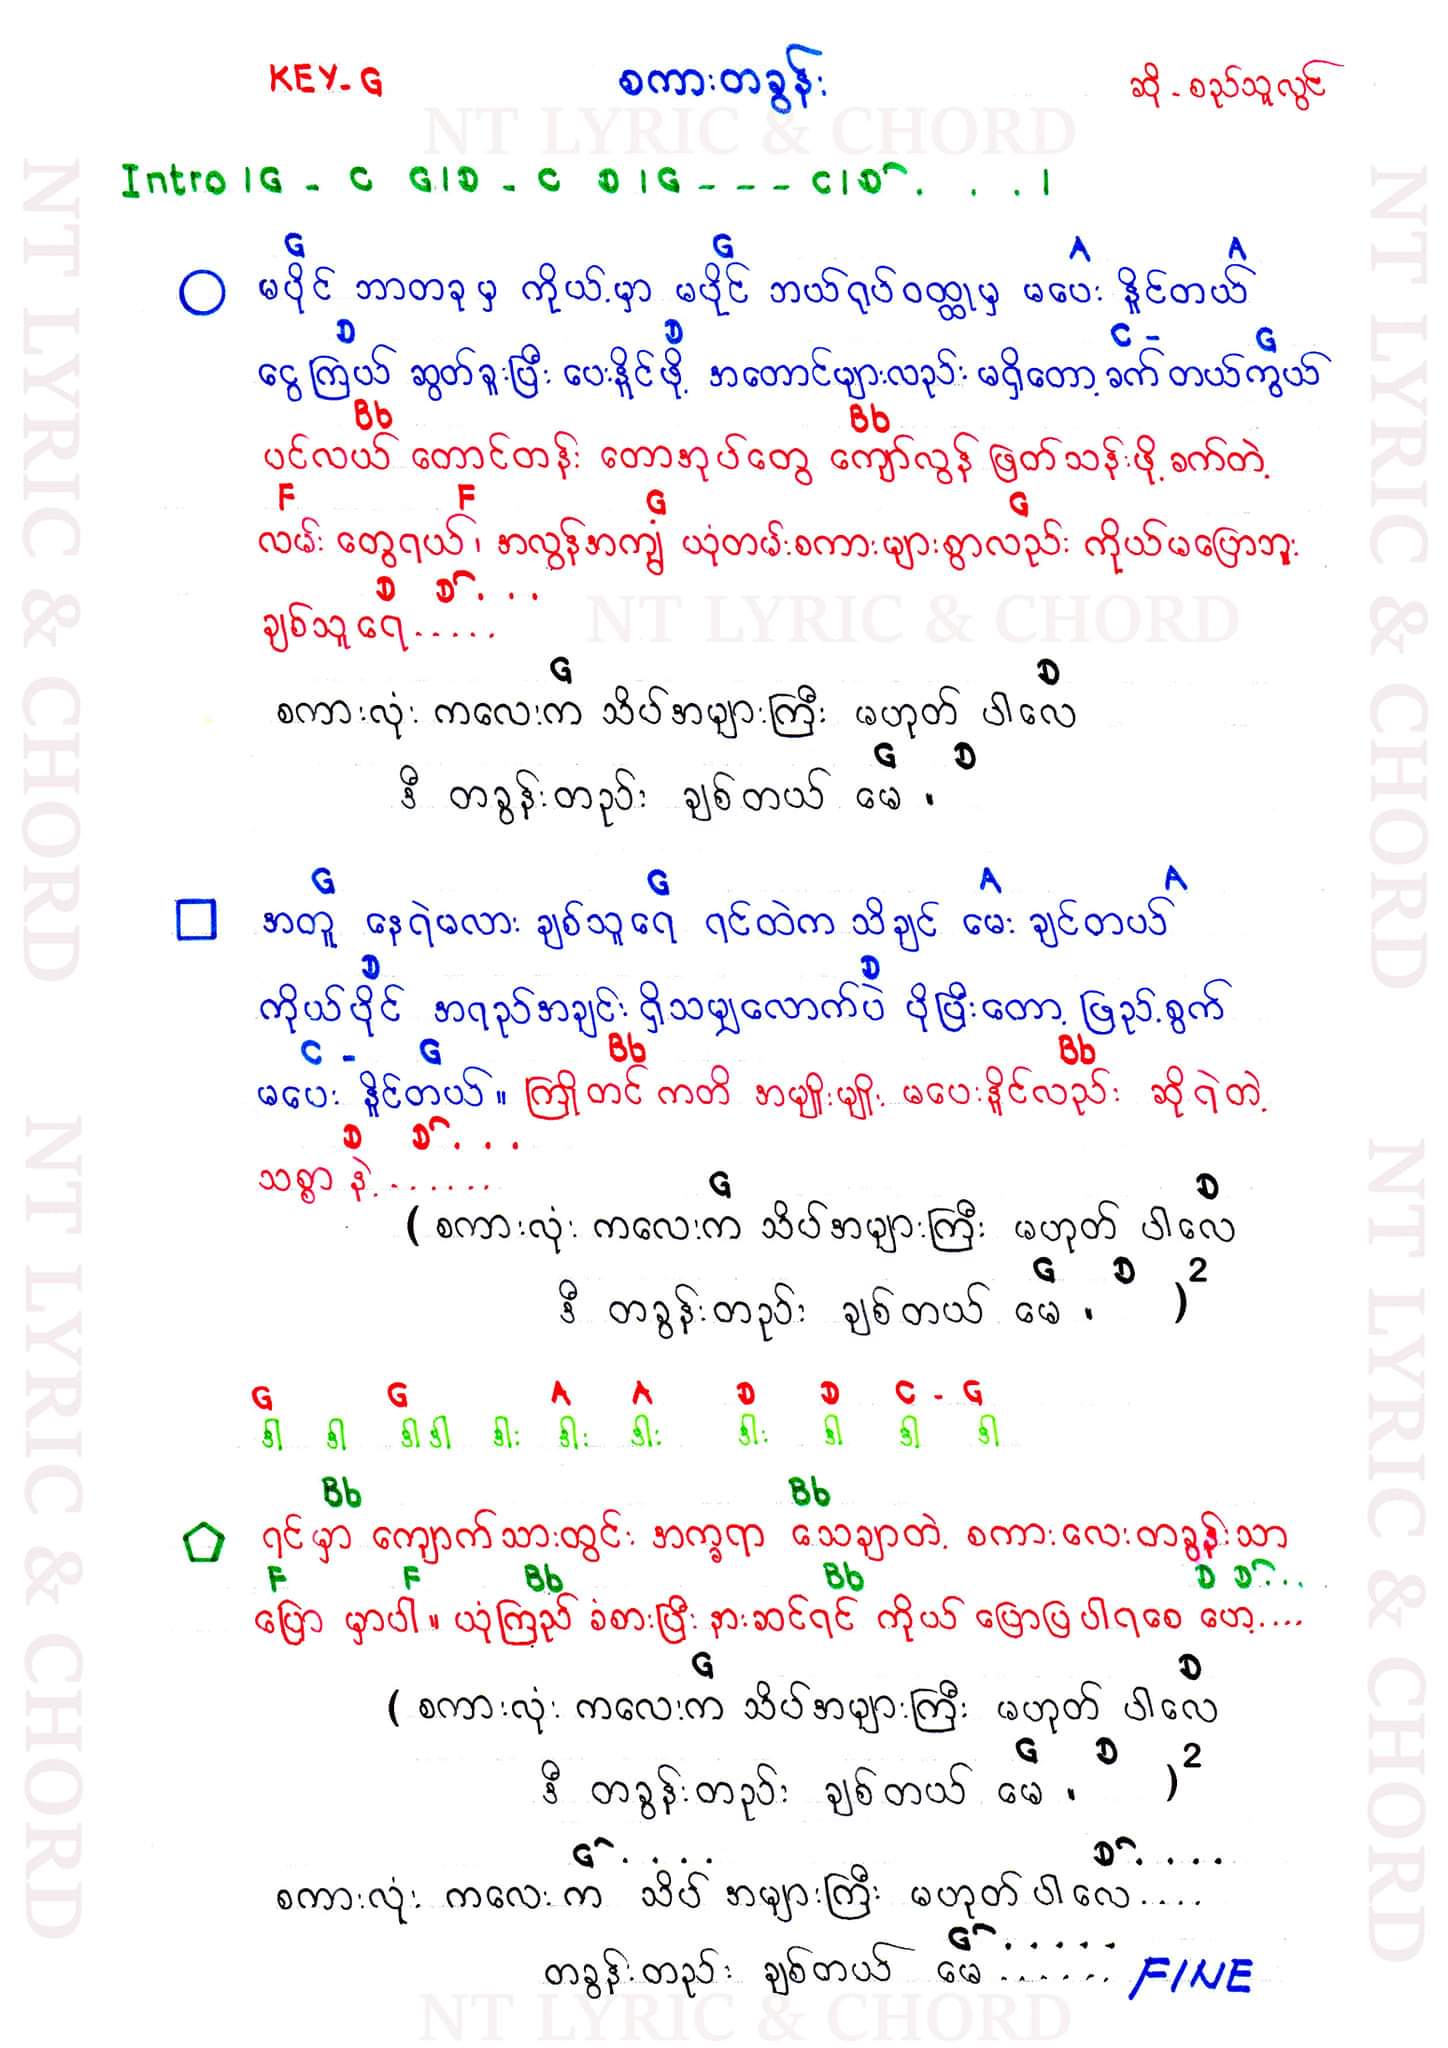 KEY-G စကားတခွန်း ဆို - စည်သူလွင်
NT LYRIC & CHORD
Intro | G - C G | D - C D | G - - - C | D . . . |
G G A A
မပိုင် ဘာတခုမှ ကိုယ့်မှာ မပိုင် ဘယ်ရုပ်ဝတ္ထုမှ မပေး နိူင်တယ်
D D C - G
ငွေကြယ် ဆွတ်ခူးပြီး ပေးနိူင်ဖို့ အတောင်များလည်း မရှိတော့ ခက်တယ်ကွယ်
Bb Bb
ပင်လယ် တောင်တန်း တောအုပ်တွေ ကျော်လွန် ဖြတ်သန်းဖို့ ခက်တဲ့
F F G G
လမ်း တွေရယ်၊ အလွန်အကျွံ ယုံတမ်းစကားများစွာလည်း ကိုယ်မပြောဘူး
D D . . .
ချစ်သူရေ.....
NT LYRIC & CHORD
G D
စကားလုံး ကလေးက သိပ်အများကြီး မဟုတ် ပါလေ
G D
ဒီ တခွန်းတည်း ချစ်တယ် မေ ။
G G A A
အတူ နေရဲမလား ချစ်သူရေ ရင်ထဲက သိချင် မေး ချင်တယ်
D D
ကိုယ်ပိုင် အရည်အချင်း ရှိသမျှလောက်ပဲ ပိုပြီးတော့ ဖြည့်စွက်
C - G Bb Bb
မပေး နိူင်တယ်။ ကြိုတင်ကတိ အမျိုးမျိုး မပေးနိူင်လည်း ဆိုရဲတဲ့
D D . . .
သစ္စာ နဲ့.......
G D
( စကားလုံး ကလေးက သိပ်အများကြီး မဟုတ် ပါလေ
G D
ဒီ တခွန်းတည်း ချစ်တယ် မေ ။ )2
G G A A D D C - G
ဒါ ဒါ ဒါဒါ ဒါး ဒါး ဒါး ဒါး ဒါ ဒါ ဒါ
Bb Bb
ရင်မှာ ကျောက်သားတွင်း အက္ခရာ သေချာတဲ့ စကားလေးတခွန်းသာ
F F Bb Bb D D . . .
ပြော မှာပါ။ ယုံကြည် ခံစားပြီး နားဆင်ရင် ကိုယ် ပြောပြပါရစေ ဟေ့....
G D
( စကားလုံး ကလေးက သိပ်အများကြီး မဟုတ် ပါလေ
G D
ဒီ တခွန်းတည်း ချစ်တယ် မေ ။ )2
G . . . . D . . . .
စကားလုံး ကလေးက သိပ် အများကြီး မဟုတ်ပါလေ....
G . . . . .
တခွန်းတည်း ချစ်တယ် မေ ...... FINE
NT LYRIC & CHORD
NT LYRIC & CHORD
NT LYRIC & CHORD
NT LYRIC & CHORD
NT LYRIC & CHORD